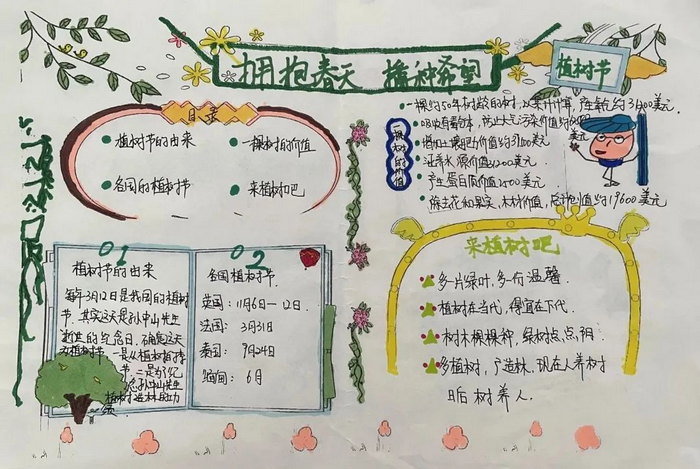 拥抱春天 播种希望
植树节
目录
植树节的由来
一棵树的价值
各国的植树节
来植树吧
01
植树节的由来
每年3月12日是我国的植树
节，其实这天是孙中山先生
逝世的纪念日，确定这天
为植树节，一是从植树
节，二是为了纪
念孙中山先生
02
各国植树节
英国：11月6日—12日
法国：3月31日
泰国：9月24日
缅甸：6月
一棵树的价值
一棵约50年树龄的树，以累计计算，产生氧约31200美元
增加土壤肥力价值约31200美元
产生蛋白质价值2500美元
除去花和果实、木材价值，总计创值约19600美元
来植树吧
多一片绿叶，多一份温馨.
植树在当代，得宜在下代.
树木棵棵种，绿树点点阴.
多植树，广造林，现在人养树
日后树养人.